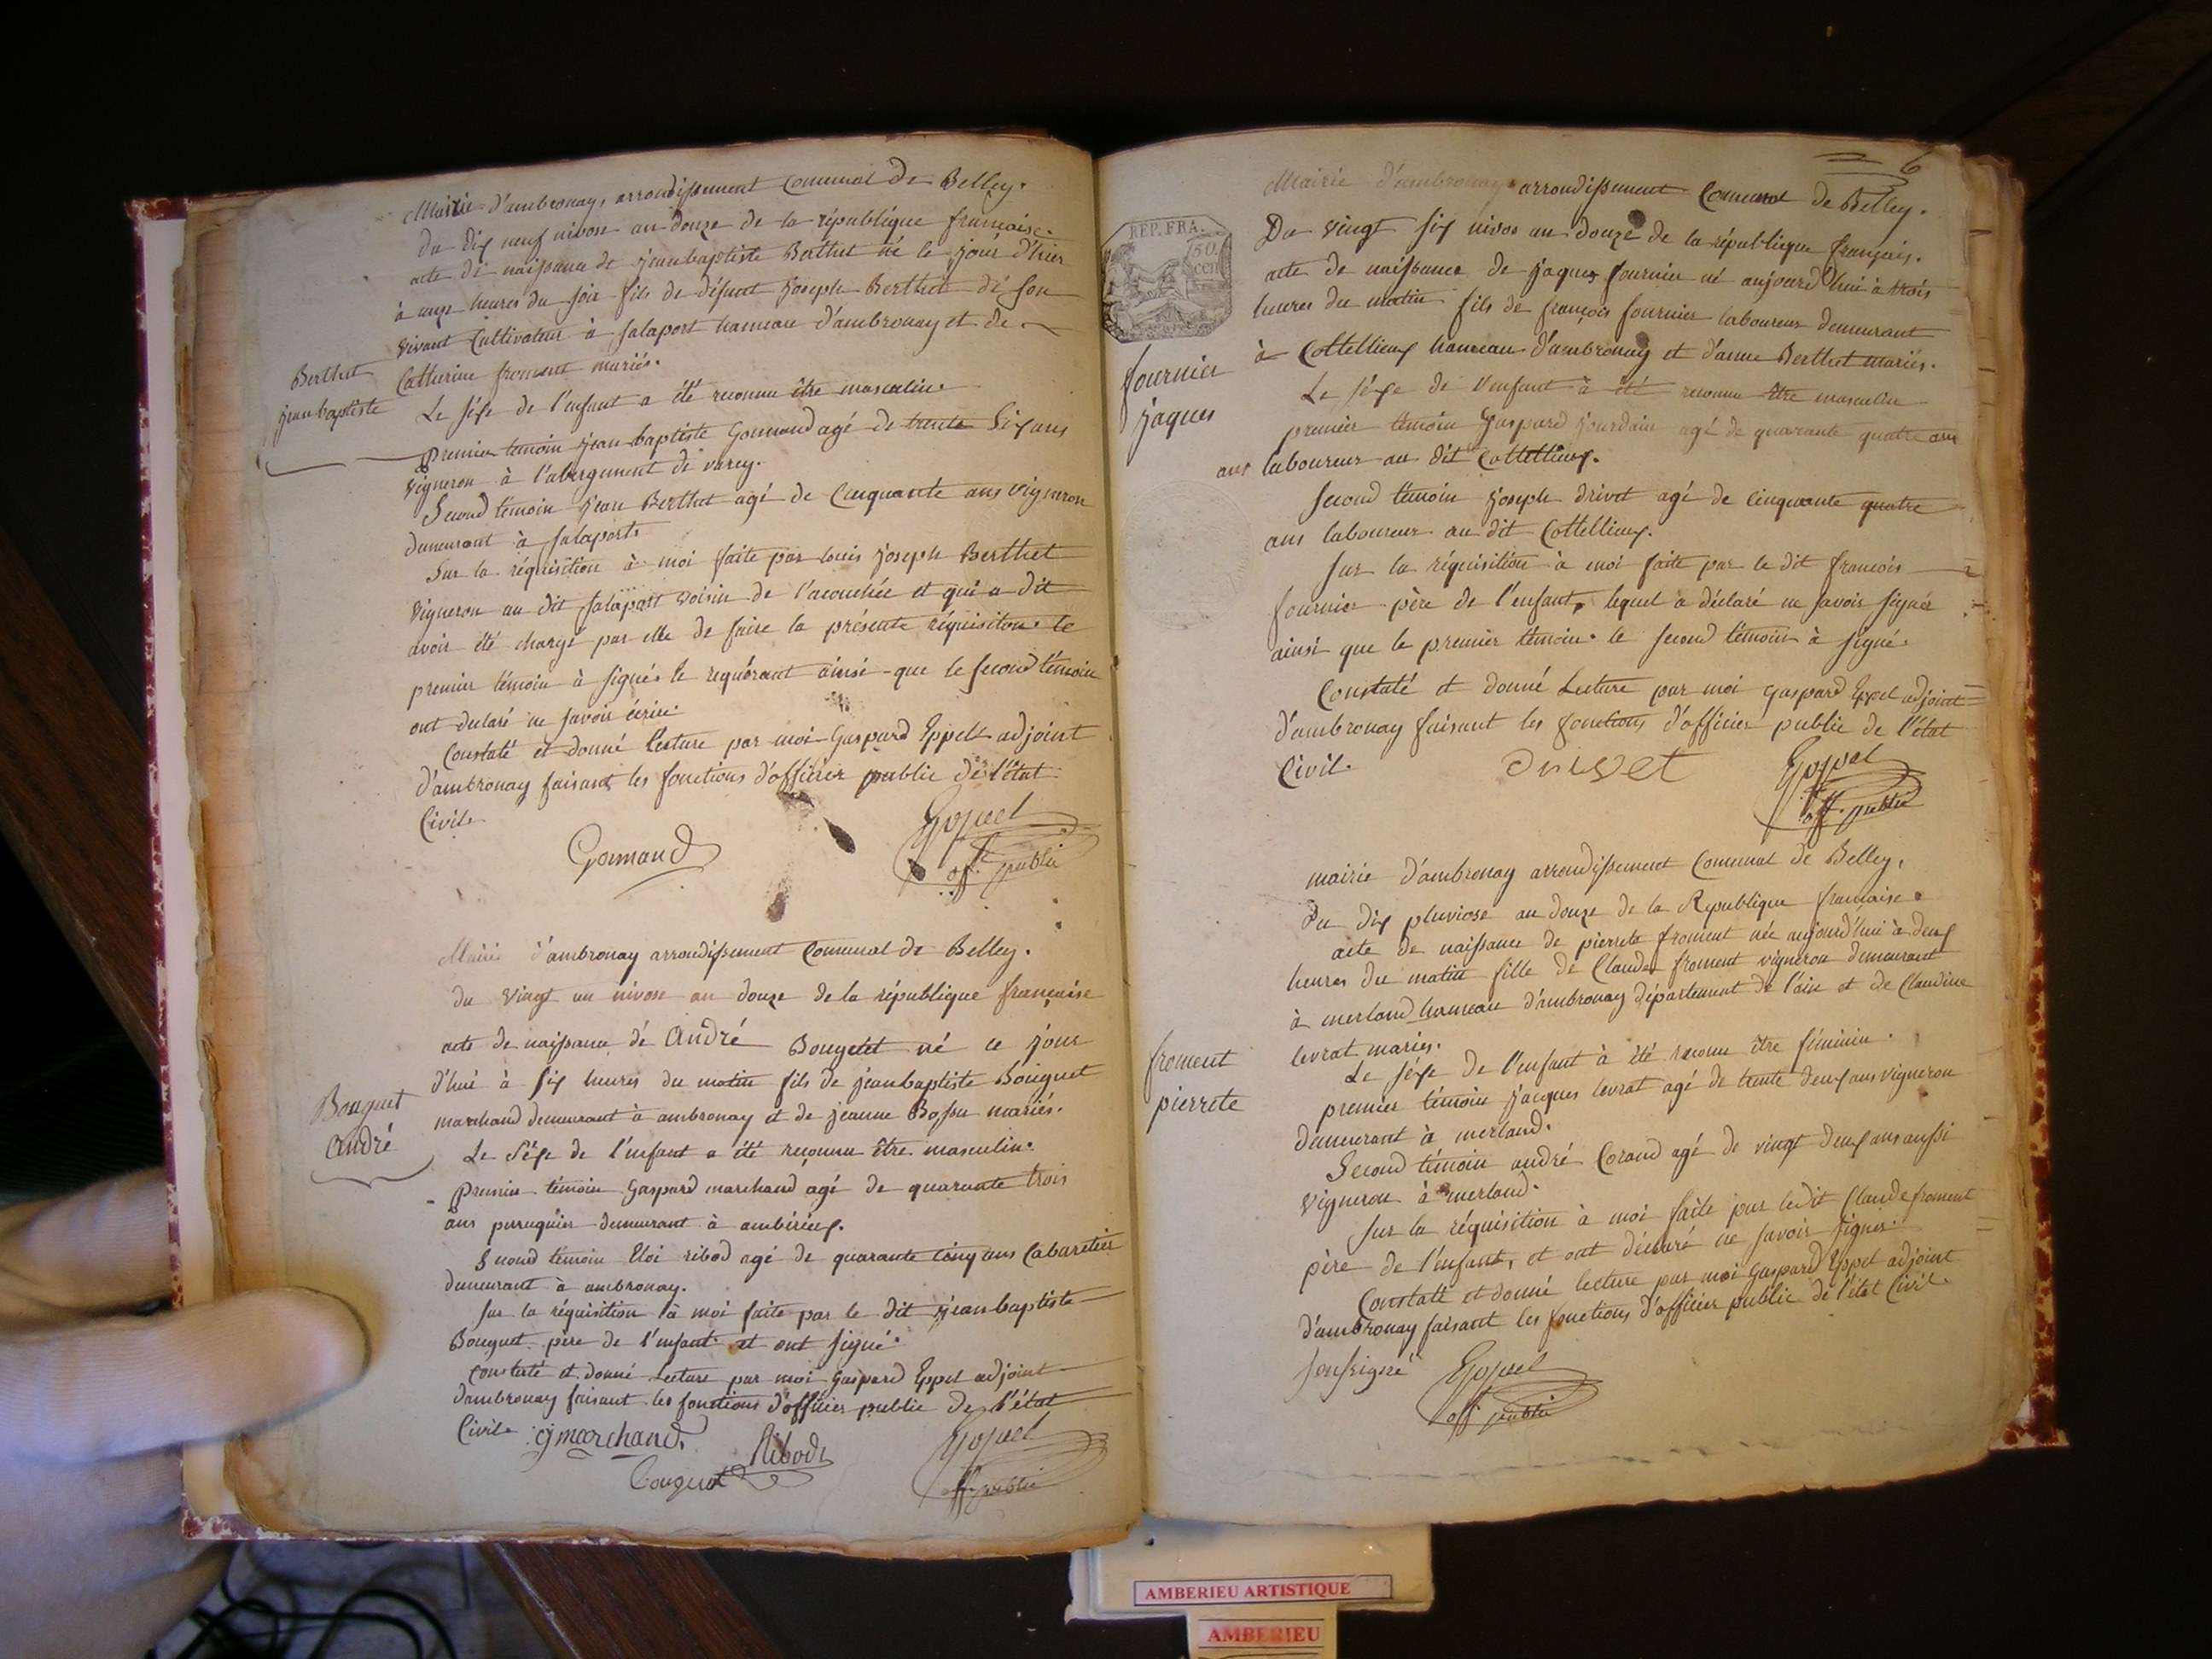 Mairie d'ambronay, arrondissement Communal de Belley.
du dix neuf nivose an douze de la république française.
acte de naissance de jeanbaptiste Berthet né le jour d'hier
à onze heures du soir fils de défunt joseph Berthet de son
vivant Cultivateur à salaport hameau d'ambronay et de
Catherine froment mariés.
Berthet
jeanbaptiste
Le sexe de l'enfant a été reconnu être masculin.
Premier temoin jean baptiste Gonnand agé de trente six ans
vigneron à l'abergement de varey.
Second témoin jean Berthet agé de Cinquante ans vigneron
demeurant à salaport.
Sur la réquisition à moi faite par louis joseph Berthet
vigneron au dit salaport voisin de l'acouchée et qui a dit
avoir été chargé par elle de faire la présente réquisiton. le
premier témoin à signé. le requérant ainsi que le second témoin
ont declaré ne savoir écrire.
Constaté et donné lecture par moi Gaspard Eppel adjoint
d'ambronay faisant les fonctions d'officier public de l'état
Civil.
Gonnand
Eppel
off. public
Mairie d'ambronay arrondissement Communal de Belley.
du vingt un nivose an douze de la république française
acte de naissance de André Bouguet né ce jour
d'hui à six heures du matin fils de jeanbaptiste Bouguet
marchand demeurant à ambronay et de jeanne Bossu mariés.
Bouguet
André
Le Séxe de l'enfant a été reconnu être masculin.
Premier témoin Gaspard marchand agé de quarante trois
ans perruquier demeurant à ambérieux.
Second témoin Eloi ribod agé de quarante cinq ans Cabaretier
demeurant à ambronay.
sur la réquisition à moi faite par le dit jeanbaptiste
Bouguet père de l'enfant et ont signé.
Constaté et donné Lecture par moi Gaspard Eppel adjoint
dambronay faisant les fonctions d'officier public de l'état
Civil. gmarchand
Ribod
Bouguet
Eppel
off. public
6
Mairie d'ambronay arrondissement Communal de Belley.
REP. FRA.
50
cen
Du vingt six nivos an douze de la république français.
acte de naissance de jaques fournier né aujourd'hui à trois
heures du matin fils de françois fournier laboureur demeurant
à Cottellieux hameau d'ambronay et d'anne Berthet mariés.
fournier
jaques
Le séxe de l'enfant à été reconnu être masculin
premier témoin Gaspard jourdain agé de quarante quatre ans
ans laboureur au dit Cottellieux.
second témoin joseph drivet agé de cinquante quatre
ans laboureur au dit Cottellieux.
sur la réquisition à moi faite par le dit francois
fournier père de l'enfant, lequel a déclaré ne savoir signer
ainsi que le premier témoin. le second témoin à signé.
Constaté et donné Lecture par moi gaspard Eppel adjoint
d'ambronay faisant les fonctions d'officier public de l'état
Civil.
drivet
Eppel
off. public
mairie d'ambronay arrondissement Communal de Belley,
Du dix pluviose an douze de la République francaise.
acte de naissance de pierrete froment née aujourd'hui à deux
heures du matin fille de Claude froment vigneron demeurant
à merland hameau d'ambronay département de l'ain et de Claudine
levrat mariés.
froment
pierrete
Le séxe de l'enfant à été reconnu être féminin.
premier témoin jacques levrat agé de trente deux ans vigneron
demeurant à merland.
Second témoin andré Corand agé de vingt deux ans aussi
vigneron à merland.
sur la réquisition à moi faite par ledit Claude froment
père de l'enfant, et ont déclaré ne savoir signer.
Constaté et donné lecture par moi Gaspard Eppel adjoint
d'ambronay faisant les fonctions d'officier public de l'état Civil
soussigné
Eppel
off public
AMBERIEU ARTISTIQUE
AMBERIEU